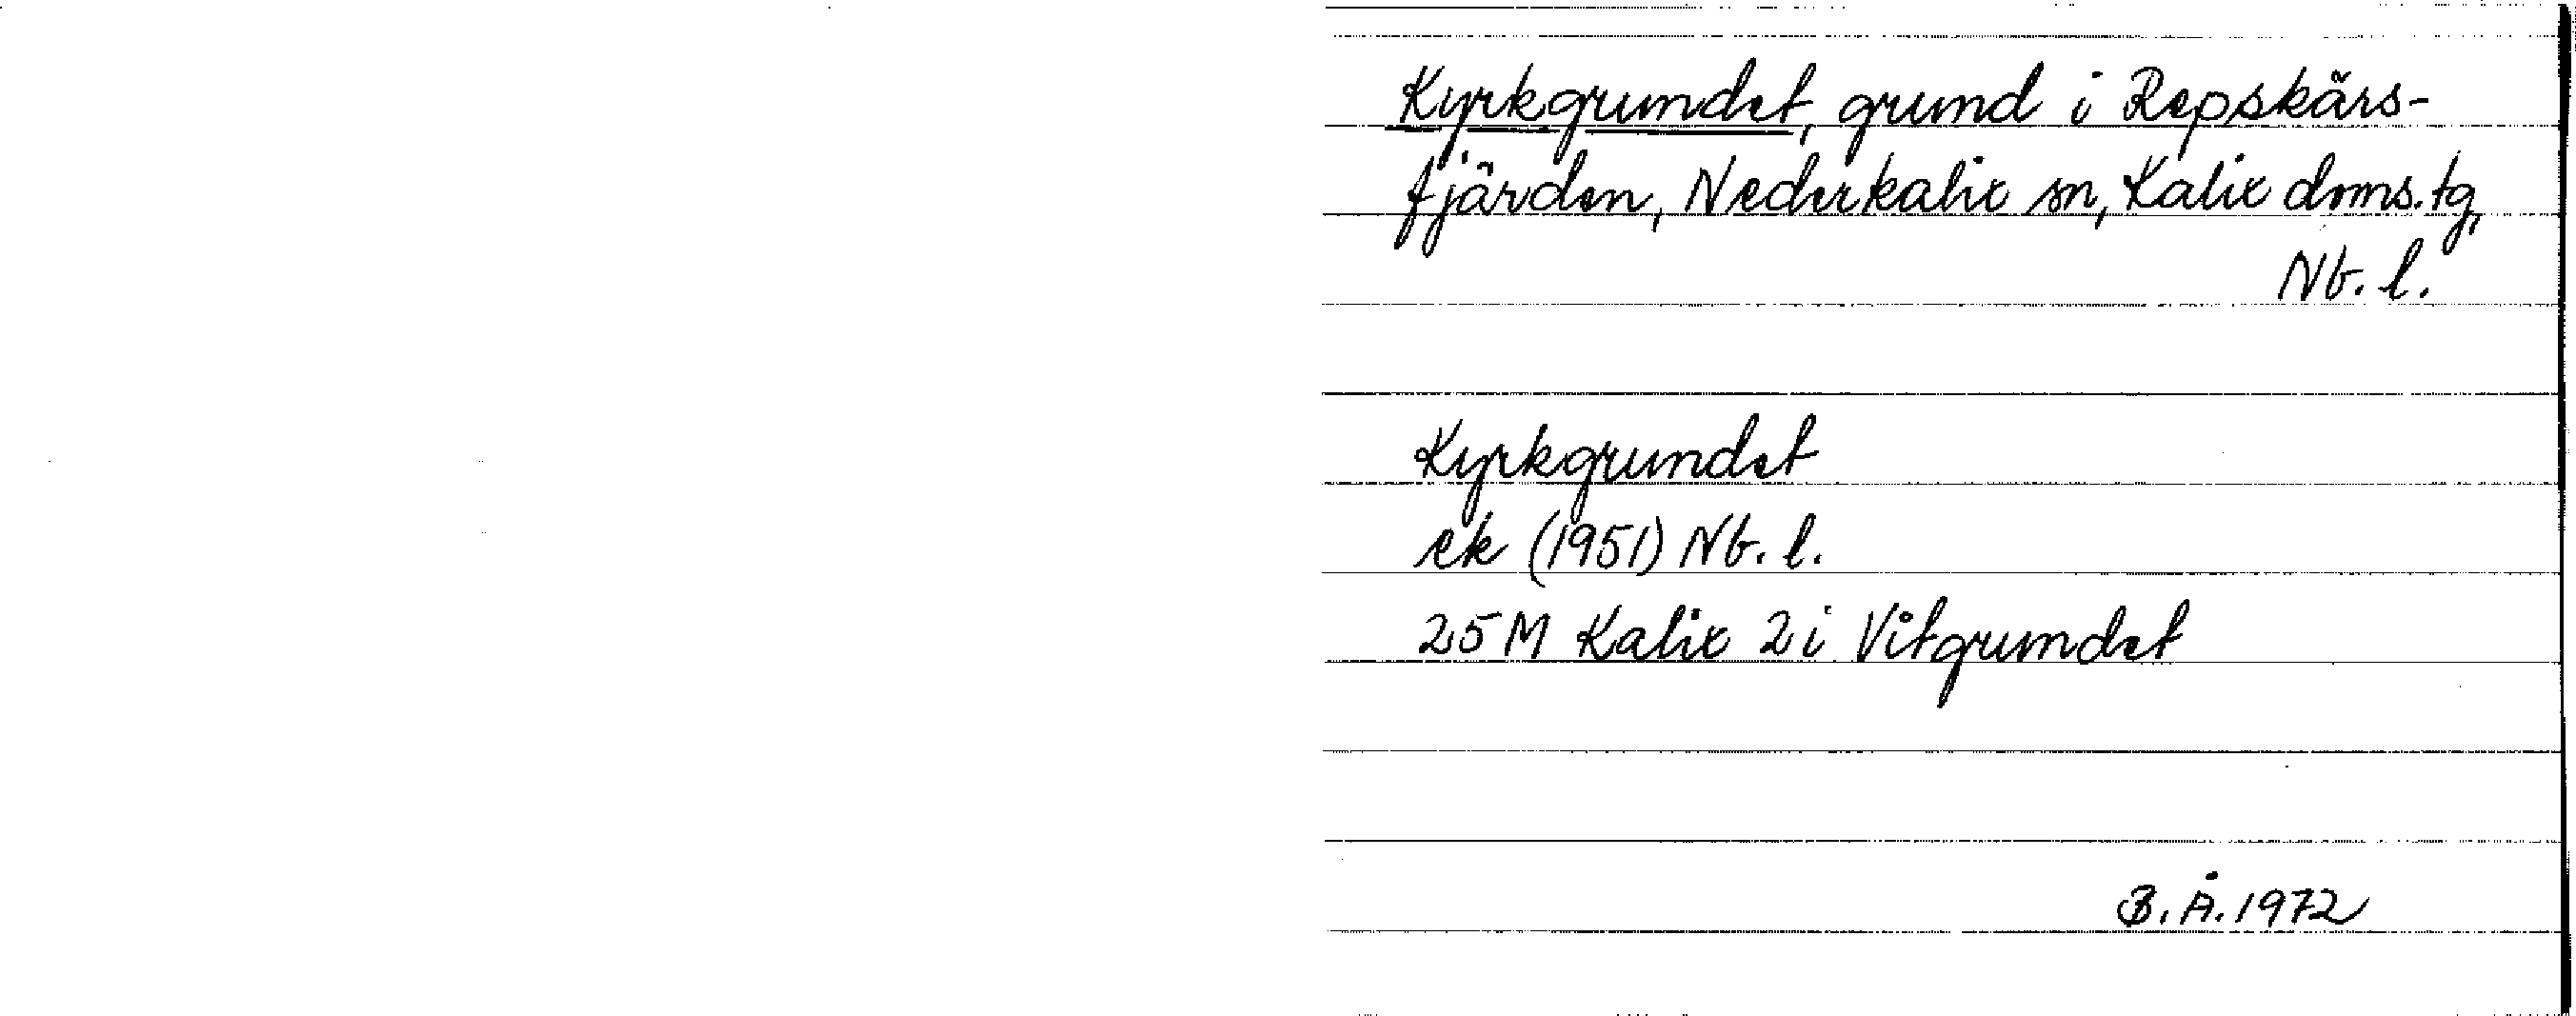 Kyrkgrundet, grund i Repskärs-
fjärden, Nederkalix sn, Kalix doms.tg,
Nb. l.
Kyrkgrundet
ek (1951) Nb. l.
25 M Kalix 2 i Vitgrundet
B. Å. 1972